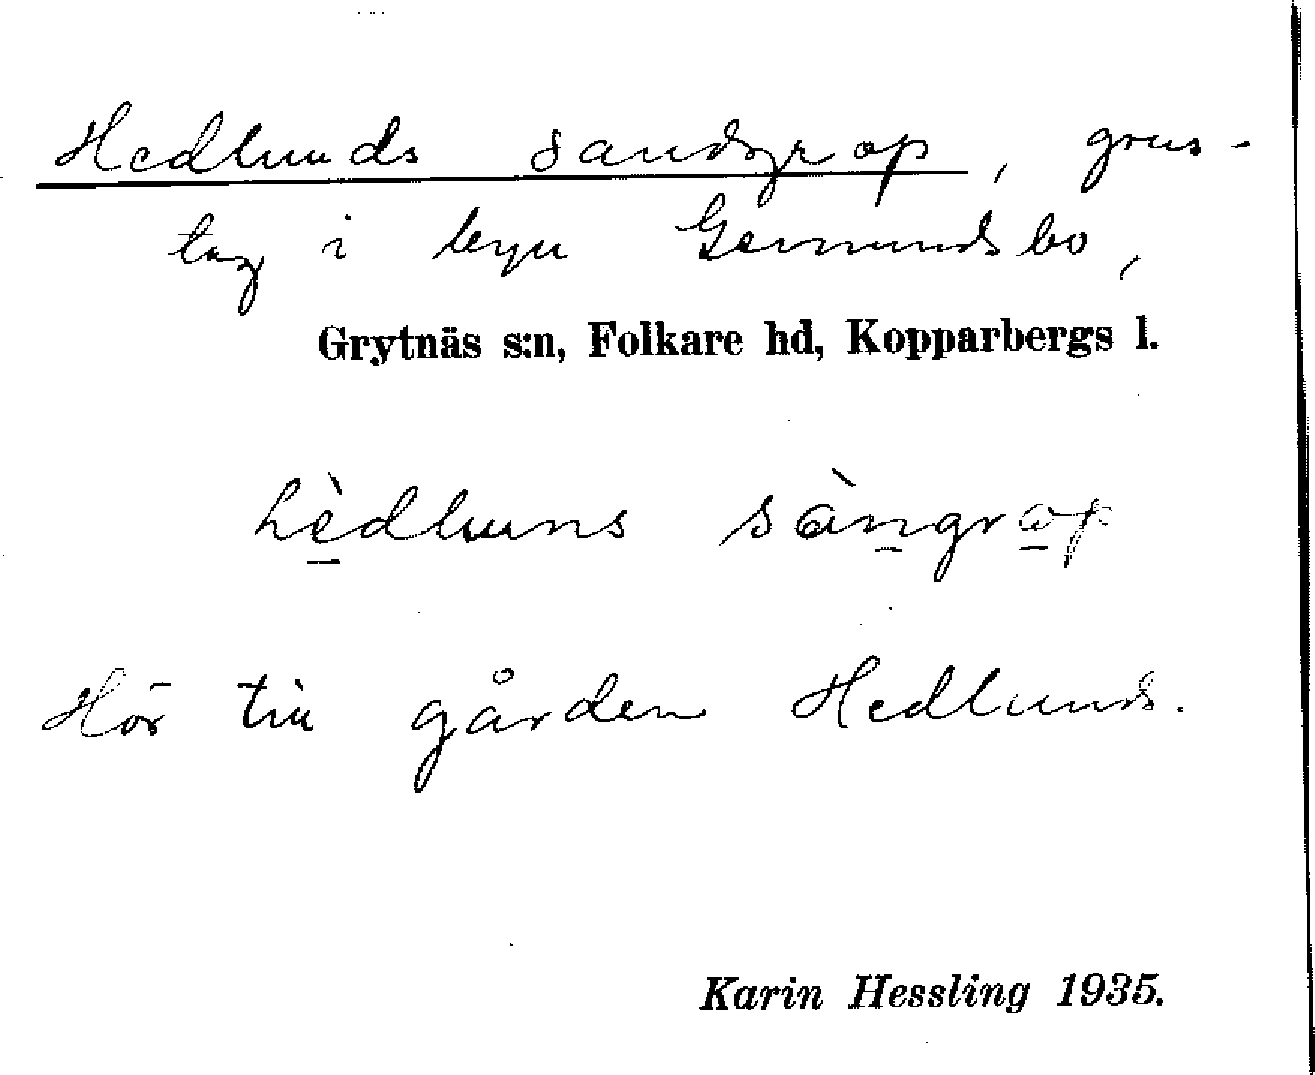 Hedlunds sandgrop, grus-
tag i byn Germundsbo,
Grytnäs s:n, Folkare hd, Kopparbergs l.
hè̱dluns sàṉgro̱p
Hör till gården Hedlunds.
Karin Hessling 1935.